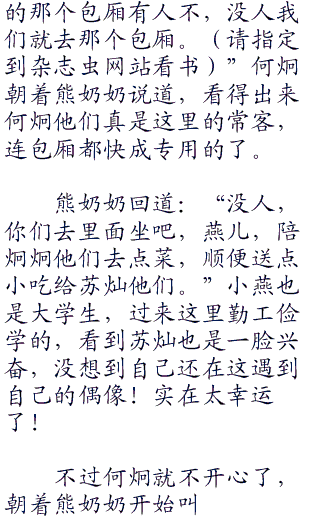 的那个包厢有人不，没人我
们就去那个包厢。（请指定
到杂志虫网站看书）”何炯
朝着熊奶奶说道，看得出来
何炯他们真是这里的常客，
连包厢都快成专用的了。
熊奶奶回道：“没人，
你们去里面坐吧，燕儿，陪
炯炯他们去点菜，顺便送点
小吃给苏灿他们。”小燕也
是大学生，过来这里勤工俭
学的，看到苏灿也是一脸兴
奋，没想到自己还在这遇到
自己的偶像！实在太幸运
了！
不过何炯就不开心了，
朝着熊奶奶开始叫